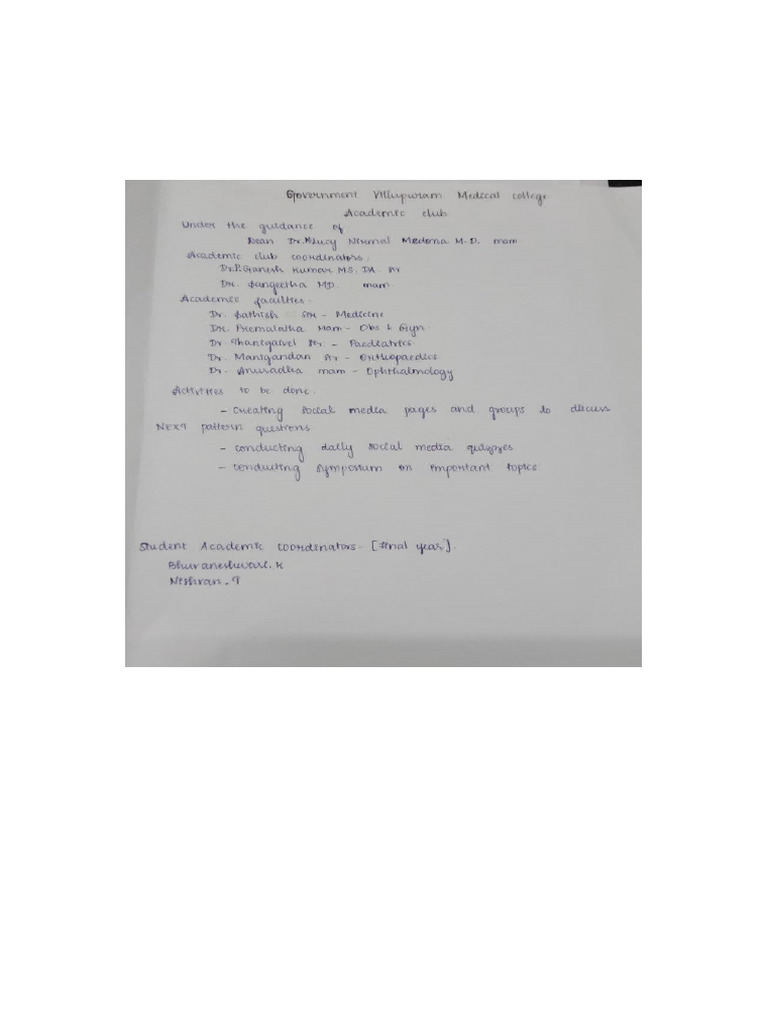 Government Villupuram Medical college
Academic club
Under the guidance of
Dean Dr. Lucy Nirmal Medona M.D. mam
Academic club coordinators:
Dr.P.Ganesh Kumar MS, DA. sir
Dr. Sangeetha MD. mam
Academic faculties.
Dr. Sathish sir - Medicine
Dr. Premalatha Mam - Obs & Gyn
Dr. Thangavel sir - Paediatrics
Dr. Manigandan sir - Orthopaedics
Dr. Anuradha mam - Ophthalmology
Activities to be done.
- creating social media pages and groups to discuss
NEXT pattern questions
- conducting daily social media quizzes
- conducting symposium on important topics
Student Academic coordinators - [final year].
Bhuvaneshwari.K
Nishvan.T